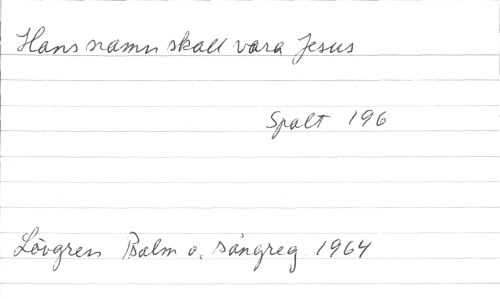 Hans namn skall vara Jesus
Spalt 196
Lövgren Psalm o. sångreg 1964